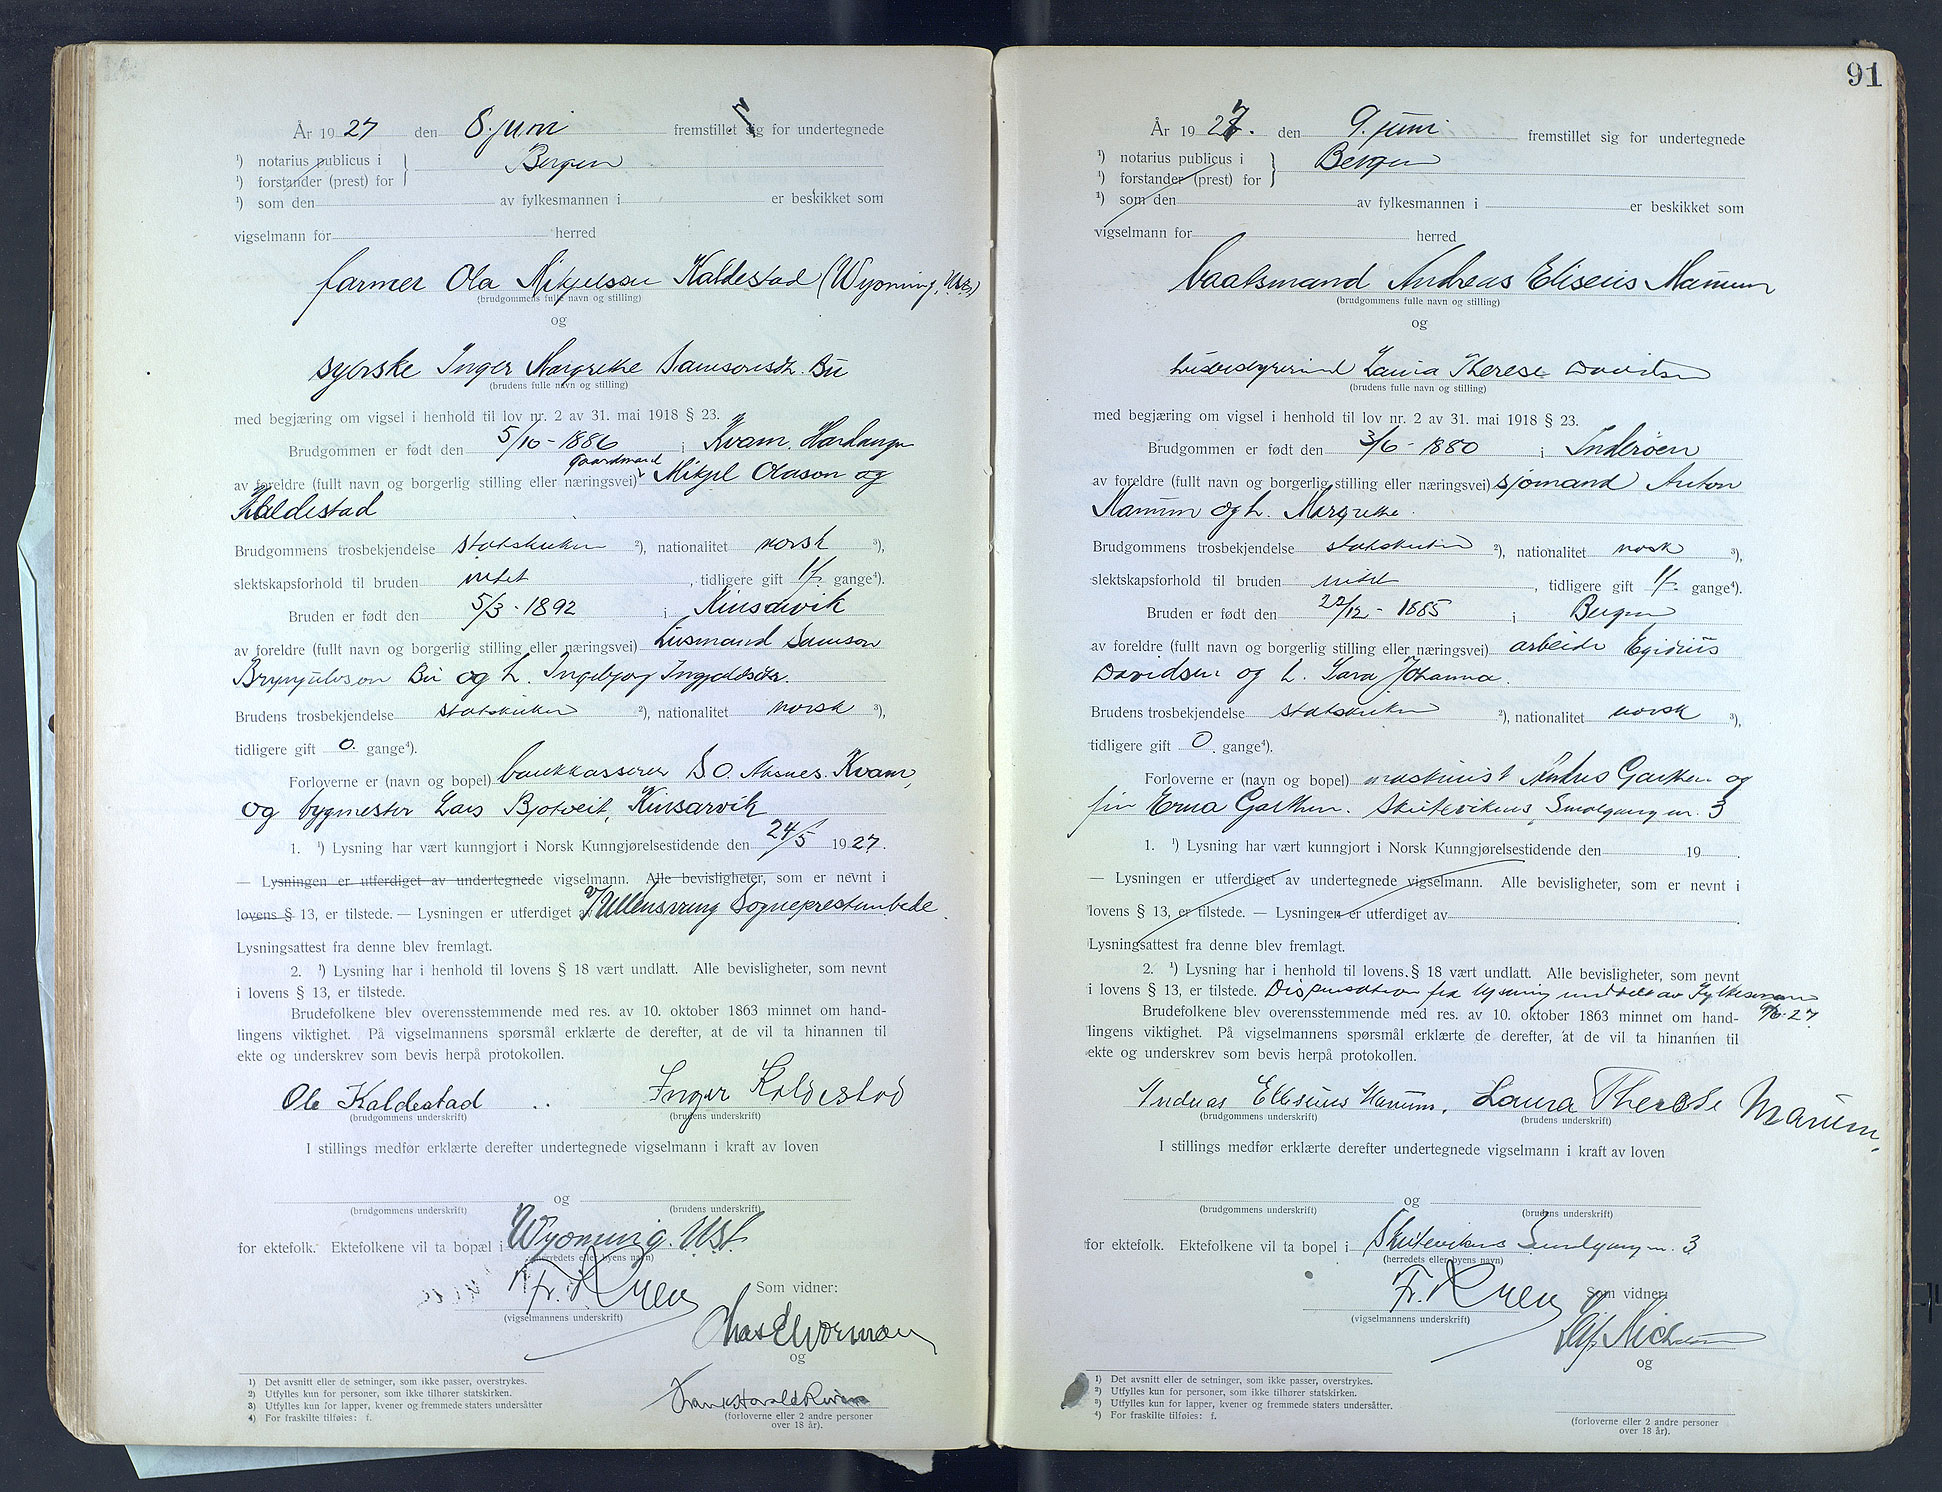 År 1927 den 8. juni fremstillet sig for undertegnede
¹) notarius publicus i
Bergen
¹) forstander (prest) for
¹) som den av fylkesmannen i er beskikket som
vigselmann for herred
farmer Ola Mikjelson Kaldestad (Wyoming, U.S.A.)
(brudgommens fulle navn og stilling)
og
syerske Inger Margrethe Samsonsdtr. Bu
(brudens fulle navn og stilling)
med begjæring om vigsel i henhold til lov nr. 2 av 31. mai 1918 § 23.
Brudgommen er født den 5/10 - 1886 i Kvam, Hardanger
gaardmand
av foreldre (fullt navn og borgerlig stilling eller næringsvei) Mikjel Olason og
Kaldestad
Brudgommens trosbekjendelse statskirken ²), nationalitet norsk ³),
slektskapsforhold til bruden intet, tidligere gift 1/. gange⁴).
Bruden er født den 5/3 - 1892 i Kinsarvik
av foreldre (fullt navn og borgerlig stilling eller næringsvei) Husmand Samson
Brynjulvson Bu og h. Ingebjorg Ingjaldsdtr.
Brudens trosbekjendelse statskirken ²), nationalitet norsk ³),
tidligere gift 0. gange⁴).
Forloverne er (navn og bopel) bankkasserer S O. Aksnes. Kvam,
og bygmester Lars Bjotveit, Kinsarvik
1. ¹) Lysning har vært kunngjort i Norsk Kunngjørelsestidende den 24/5 1927.
— Lysningen er utferdiget av undertegnede vigselmann. Alle bevisligheter, som er nevnt i
lovens § 13, er tilstede. — Lysningen er utferdiget av Ullensvang Sogneprestembede.
Lysningsattest fra denne blev fremlagt.
2. ¹) Lysning har i henhold til lovens § 18 vært undlatt. Alle bevisligheter, som nevnt
i lovens § 13, er tilstede.
Brudefolkene blev overensstemmende med res. av 10. oktober 1863 minnet om hand-
lingens viktighet. På vigselmannens spørsmål erklærte de derefter, at de vil ta hinannen til
ekte og underskrev som bevis herpå protokollen.
Ole Kaldestad Inger Kaldestad
(brudgommens underskrift) (brudens underskrift)
I stillings medfør erklærte derefter undertegnede vigselmann i kraft av loven
og
(brudgommens underskrift) (brudens underskrift)
for ektefolk. Ektefolkene vil ta bopæl i Wyoming. U.S.A.
(herredets eller byens navn)
Som vidner:
Fr.
(vigselmannens underskrift)
og
Frank Harald
(forloverne eller 2 andre personer
over 18 år).
1) Det avsnitt eller de setninger, som ikke passer, overstrykes.
2) Utfylles kun for personer, som ikke tilhører statskirken.
3) Utfylles kun for lapper, kvener og fremmede staters undersåtter
4) For fraskilte tilføies: f.
91
År 1927. den 9. juni fremstillet sig for undertegnede
¹) notarius publicus i
Bergen
¹) forstander (prest) for
¹) som den av fylkesmannen i er beskikket som
vigselmann for herred
baatsmand Andreas Eliseus Hamum
(brudgommens fulle navn og stilling)
og
Laura Therese Davidsen
(brudens fulle navn og stilling)
med begjæring om vigsel i henhold til lov nr. 2 av 31. mai 1918 § 23.
Brudgommen er født den 3/6 - 1880 i Inderøen
av foreldre (fullt navn og borgerlig stilling eller næringsvei) sjømand Anton
Hamum og h. Margrethe.
Brudgommens trosbekjendelse statskirken ²), nationalitet norsk ³),
slektskapsforhold til bruden intet, tidligere gift 1/. gange⁴).
Bruden er født den 22/12 - 1885 i Bergen
av foreldre (fullt navn og borgerlig stilling eller næringsvei) arbeider Egidius
Davidsen og h. Sara Johanna.
Brudens trosbekjendelse statskirken ²), nationalitet norsk ³),
tidligere gift 0. gange⁴).
Forloverne er (navn og bopel) maskinist Garthen og
fru Erna Garthen. Skutevikens Smalgang nr. 3
1. ¹) Lysning har vært kunngjort i Norsk Kunngjørelsestidende den 19 .
— Lysningen er utferdiget av undertegnede vigselmann. Alle bevisligheter, som er nevnt i
lovens § 13, er tilstede. — Lysningen er utferdiget av
Lysningsattest fra denne blev fremlagt.
2. ¹) Lysning har i henhold til lovens § 18 vært undlatt. Alle bevisligheter, som nevnt
i lovens § 13, er tilstede. Dispensation fra lysning meddelt av Fylkesmannen
Brudefolkene blev overensstemmende med res. av 10. oktober 1863 minnet om hand- 9/6-27
lingens viktighet. På vigselmannens spørsmål erklærte de derefter, at de vil ta hinannen til
ekte og underskrev som bevis herpå protokollen.
Andreas Elisius Hamum. Laura Therese Marum.
(brudgommens underskrift) (brudens underskrift)
I stillings medfør erklærte derefter undertegnede vigselmann i kraft av loven
og
(brudgommens underskrift) (brudens underskrift)
for ektefolk. Ektefolkene vil ta bopel i Skutevikens Smalgang nr. 3
(herredets eller byens navn)
Som vidner:
Fr.
(vigselmannens underskrift)
og
(forloverne eller 2 andre personer
over 18 år).
1) Det avsnitt eller de setninger, som ikke passer, overstrykes.
2) Utfylles kun for personer, som ikke tilhører statskirken.
3) Utfylles kun for lapper, kvener og fremmede staters undersåtter.
4) For fraskilte tilføies: f.